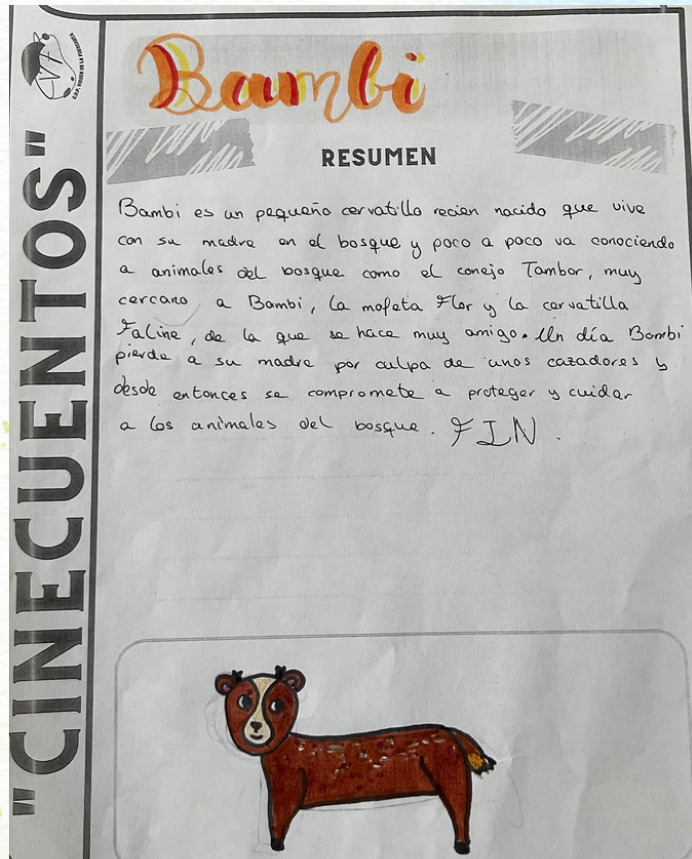 Bambi
RESUMEN
Bambi es un pequeño cervatillo recien nacido que vive
con su madre en el bosque y poco a poco va conociendo
a animales del bosque como el conejo Tambor, muy
cercano a Bambi, la mofeta Flor y la cervatilla
Faline, de la que se hace muy amigo. Un día Bambi
pierde a su madre por culpa de unos cazadores y
desde entonces se compromete a proteger y cuidar
a los animales del bosque. FIN.
"CINECUENTOS"